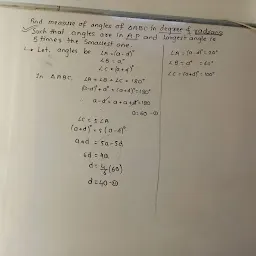 Find measure of angles of ΔABC in degree & radians
Such that angles are in A.P and longest angle is
5 times the smallest one.
Let, angles be ∠A=(a-d)°
∠B = a°
∠C=(a+d)°
In ΔABC,
∠A + ∠B + ∠C = 180°
(a-d)°+a°+(a+d)°=180°
a-d+a+a+d=180
a=60
∠C = 5 ∠A
(a+d)° = 5 (a-d)°
a+d = 5a-5d
6d = 4a
(60)
d=40
∠A = (a-d)° = 20°
∠B = a° = 60°
∠C = (a+d)° = 100°